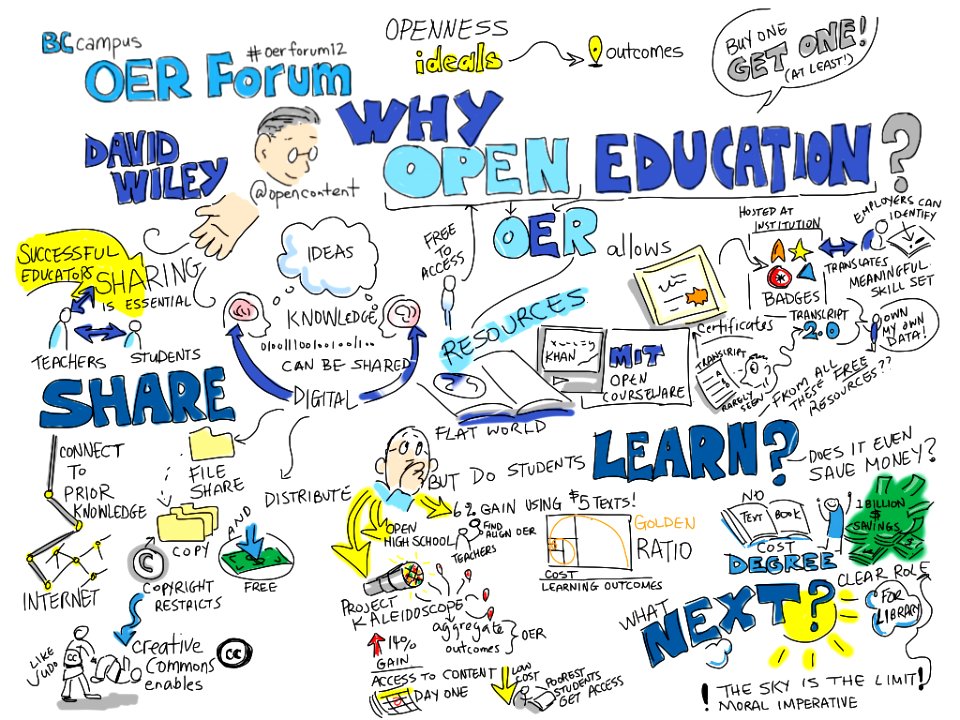 BCcampus
#oerforum12
OER Forum
OPENNESS
ideals
outcomes
BUY ONE
GET ONE!
(AT LEAST!)
DAVID
WILEY
@opencontent
WHY
OPEN EDUCATION?
SUCCESSFUL
EDUCATORS
SHARING
IS ESSENTIAL
TEACHERS
STUDENTS
IDEAS
KNOWLEDGE
CAN BE SHARED
DIGITAL
FREE
TO
ACCESS
OER
allows
RESOURCES
FLAT WORLD
KHAN
MIT
OPEN
COURSEWARE
Certificates
HOSTED AT
INSTITUTION
BADGES
TRANSLATES
EMPLOYERS CAN
IDENTIFY
MEANINGFUL
SKILL SET
TRANSCRIPT
2.0
OWN
MY OWN
DATA!
TRANSCRIPT
A
RARELY
SEEN
FROM ALL
THESE FREE
RESOURCES??
SHARE
CONNECT
TO
PRIOR
KNOWLEDGE
INTERNET
FILE
SHARE
COPY
DISTRIBUTE
AND
FREE
©
COPYRIGHT
RESTRICTS
creative
commons
enables
CC
LIKE
JUDO
CC
BUT DO STUDENTS
LEARN?
6% GAIN USING $5 TEXTS!
OPEN
HIGH SCHOOL
FIND
ALIGN OER
TEACHERS
PROJECT
KALEIDOSCOPE
aggregate
outcomes
OER
14%
GAIN
ACCESS TO CONTENT
DAY ONE
LOW
COST
POOREST
STUDENTS
GET ACCESS
GOLDEN
RATIO
COST
LEARNING OUTCOMES
DOES IT EVEN
SAVE MONEY?
NO
TEXT BOOK
COST
DEGREE
1 BILLION
$
SAVINGS
WHAT
NEXT?
CLEAR ROLE
FOR
LIBRARY
! THE SKY IS THE LIMIT!
MORAL IMPERATIVE